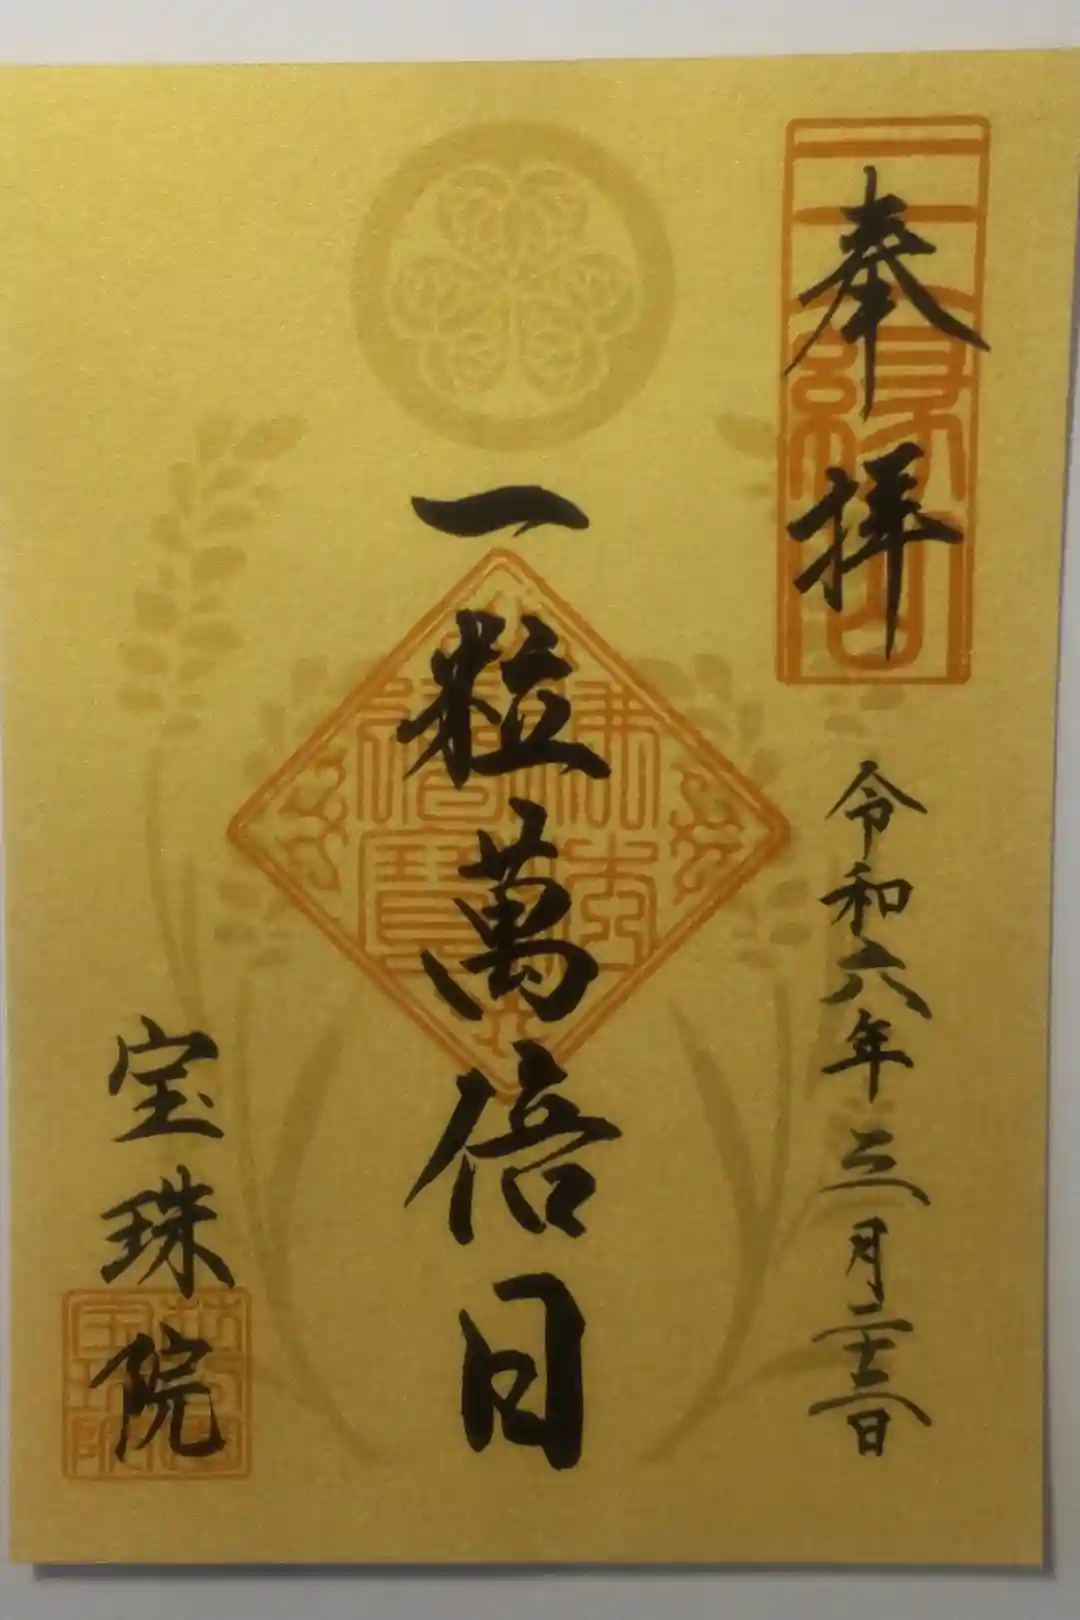 奉拝
令和六年三月二十三日
一粒萬倍日
宝珠院